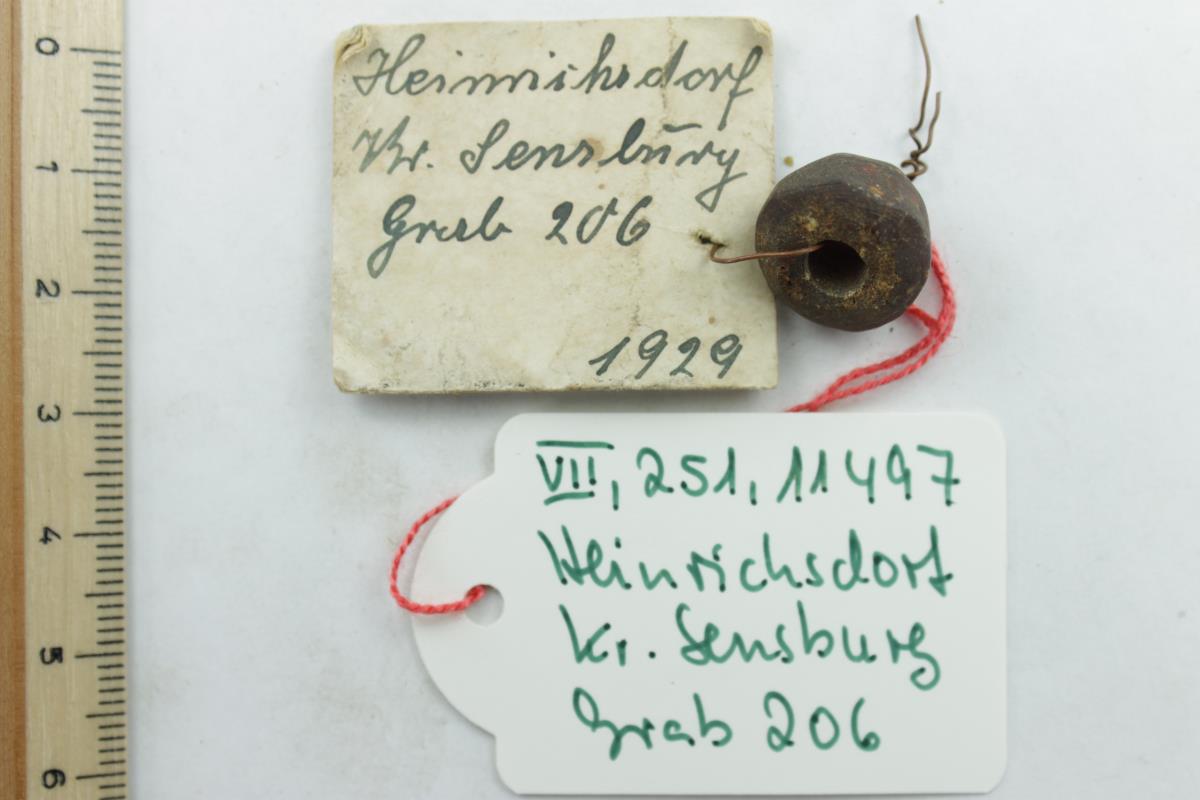 Heinrichsdorf
Kr. Sensburg
Grab 206
1929
VII, 251, 11497
Heinrichsdorf
Kr. Sensburg
Grab 206
0
1
2
3
4
5
6